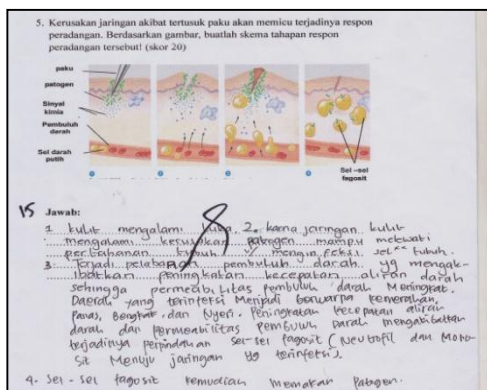 5. Kerusakan jaringan akibat tertusuk paku akan memicu terjadinya respon
peradangan. Berdasarkan gambar, buatlah skema tahapan respon
peradangan tersebut! (skor 20)
paku
patogen
Sinyal
kimia
Pembuluh
darah
Sel darah
putih
Sel -sel
fagosit
15 Jawab:
1 kulit mengalami luka, 2. karna jaringan kulit
mengalami kerusakan patogen mampu melewati
pertahanan tubuh mengинfeksi sel" tubuh.
3. Terjadi pelebaran pembuluh darah yg mengak-
ibatkan peningkatan kecepatan aliran darah
sehingga permeabilitas pembuluh darah Meningkat.
Daerah yang terinfersi Menjadi berwarna kemerahan,
Panas, Bengkak, dan Nyeri. Peningkatan kecepatan aliran
darah dan permeabilitas pembuluh darah mengakibatkan
terjadinya perpindahan sel-sel fagosit (Neutrofil dan Mono-
sit Menuju jaringan yg terinfeksi).
4. Sel - Sel fagosit kemudian memakan patogen.